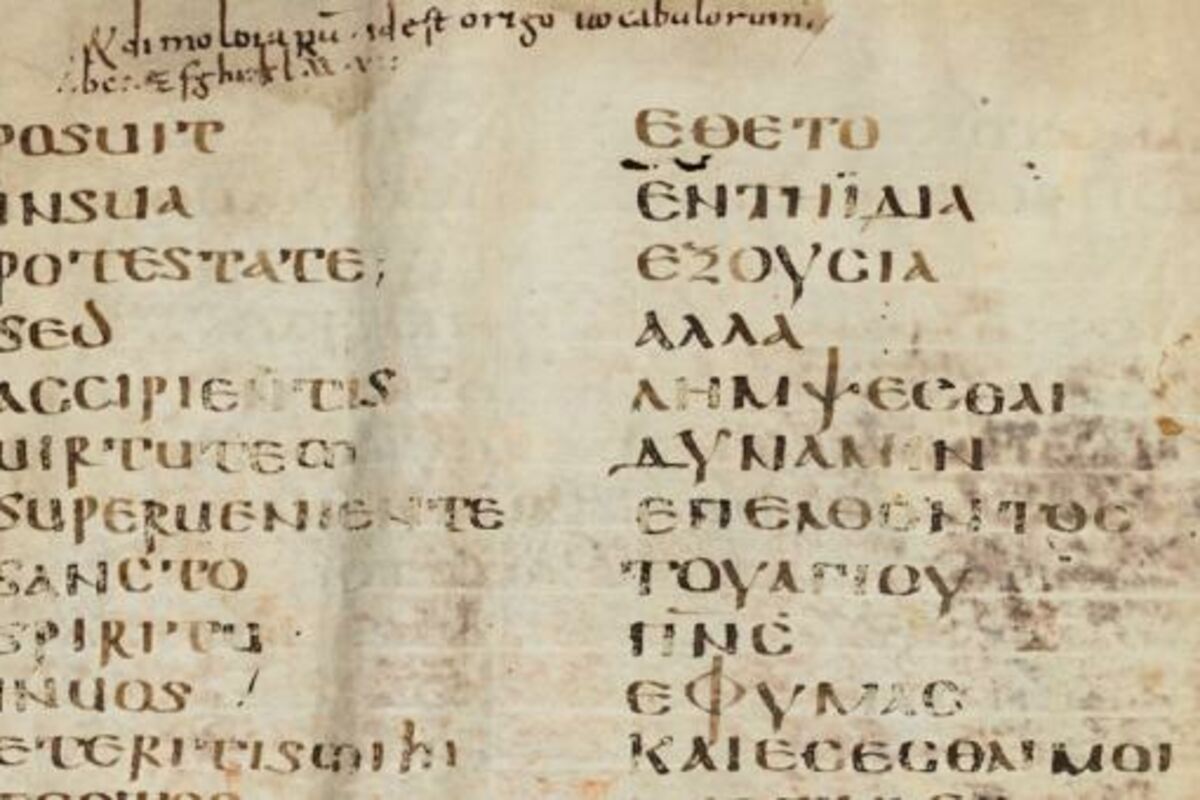 &dimoloiarū · idest origo uocabulorum
POSUIT
INSUA
POTESTATE;
SED
ACCIPIENTIS
UIRTUTEM
SUPERUENIENTE
SANCTO
SPIRITU
INUOS
ETERITISMIHI
ΕΘΕΤΟ
ΕΝΤΗΪΔΙΑ
ΕΞΟΥϹΙΑ
ΑΛΛΑ
ΛΗΜΨΕϹΘΑΙ
ΔΥΝΑΜΙΝ
ΕΠΕΛΘΟΝΤΟϹ
ΤΟΥΑΓΙΟΥ
Π̅Ν̅Ϲ̅
ΕΦΥΜΑϹ
ΚΑΙΕϹΕϹΘΑΙΜΟΙ